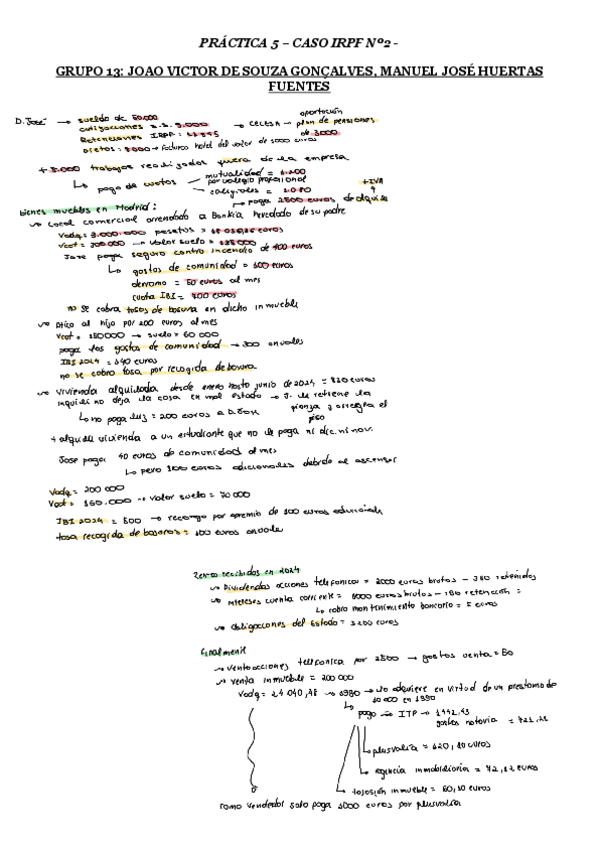 PRÁCTICA 5 – CASO IRPF Nº2 -
GRUPO 13: JOAO VICTOR DE SOUZA GONÇALVES, MANUEL JOSÉ HUERTAS
FUENTES
aportación
D. José → sueldo de 50.000
cotizaciones s.s. 3.000 → CELESA → plan de pensiones
Retenciones IRPF: de 3000
Dietas: → facturas hotel del valor de 3000 euros
+ 3.000 trabajos realizados fuera de la empresa
↳ pago de cuotas mutualidad = 1.200
por colegio profesional
alquileres = + IVA
→ paga 2500 euros de alquiler
bienes muebles en Madrid:
→ Local comercial arrendado a Bankia heredado de su padre
Vadq = 3.000.000 pesetas = euros
Vcat = 200.000 → valor suelo =
José paga seguro contra incendio de 400 euros
↳ gastos de comunidad = 600 euros
derrama = 50 euros al mes
cuota IBI = 400 euros
no se cobra tasas de basura en dicho inmueble
→ piso al hijo por 200 euros al mes
Vcat = 150000 → suelo = 60 000
paga los gastos de comunidad → 300 anuales
IBI 2024 = 340 euros
no se cobra tasa por recogida de basura
→ vivienda alquilada desde enero hasta junio de 2024 = 830 euros
inquilino deja la casa en mal estado → J. le retiene la
fianza y arregla el
piso
↳ no paga luz = 200 euros a D. José
+ alquila vivienda a un estudiante que no le paga ni dic. ni nov.
José paga 40 euros de comunidad al mes
↳ pero 300 euros adicionales debido al ascensor
Vadq = 200 000
Vcat = 160.000 → valor suelo = 70 000
IBI 2024 = 500 → recargo por apremio de 100 euros
tasa recogida de basuras = 100 euros anuales
recibidos en 2024
→ Dividendos acciones telefónica = 2000 euros brutos – 380 retenidos
→ intereses cuenta corriente = euros brutos – retención =
↳ cobro mantenimiento bancario = 5 euros
→ Obligaciones del Estado = 3200 euros
Finalmente
→ venta acciones telefónica por 2500 → gastos venta = 50
→ venta inmueble = 200 000
Vadq = 24 040,48 → 1980 → lo adquiere en virtud de un préstamo de
en 1980
pago → ITP → 1442,43
gastos notaría = 721,21
plusvalía = 420,80 euros
agencia inmobiliaria = 42,82 euros
tasación inmueble = 60,10 euros
como vendedor solo paga 3000 euros por plusvalía